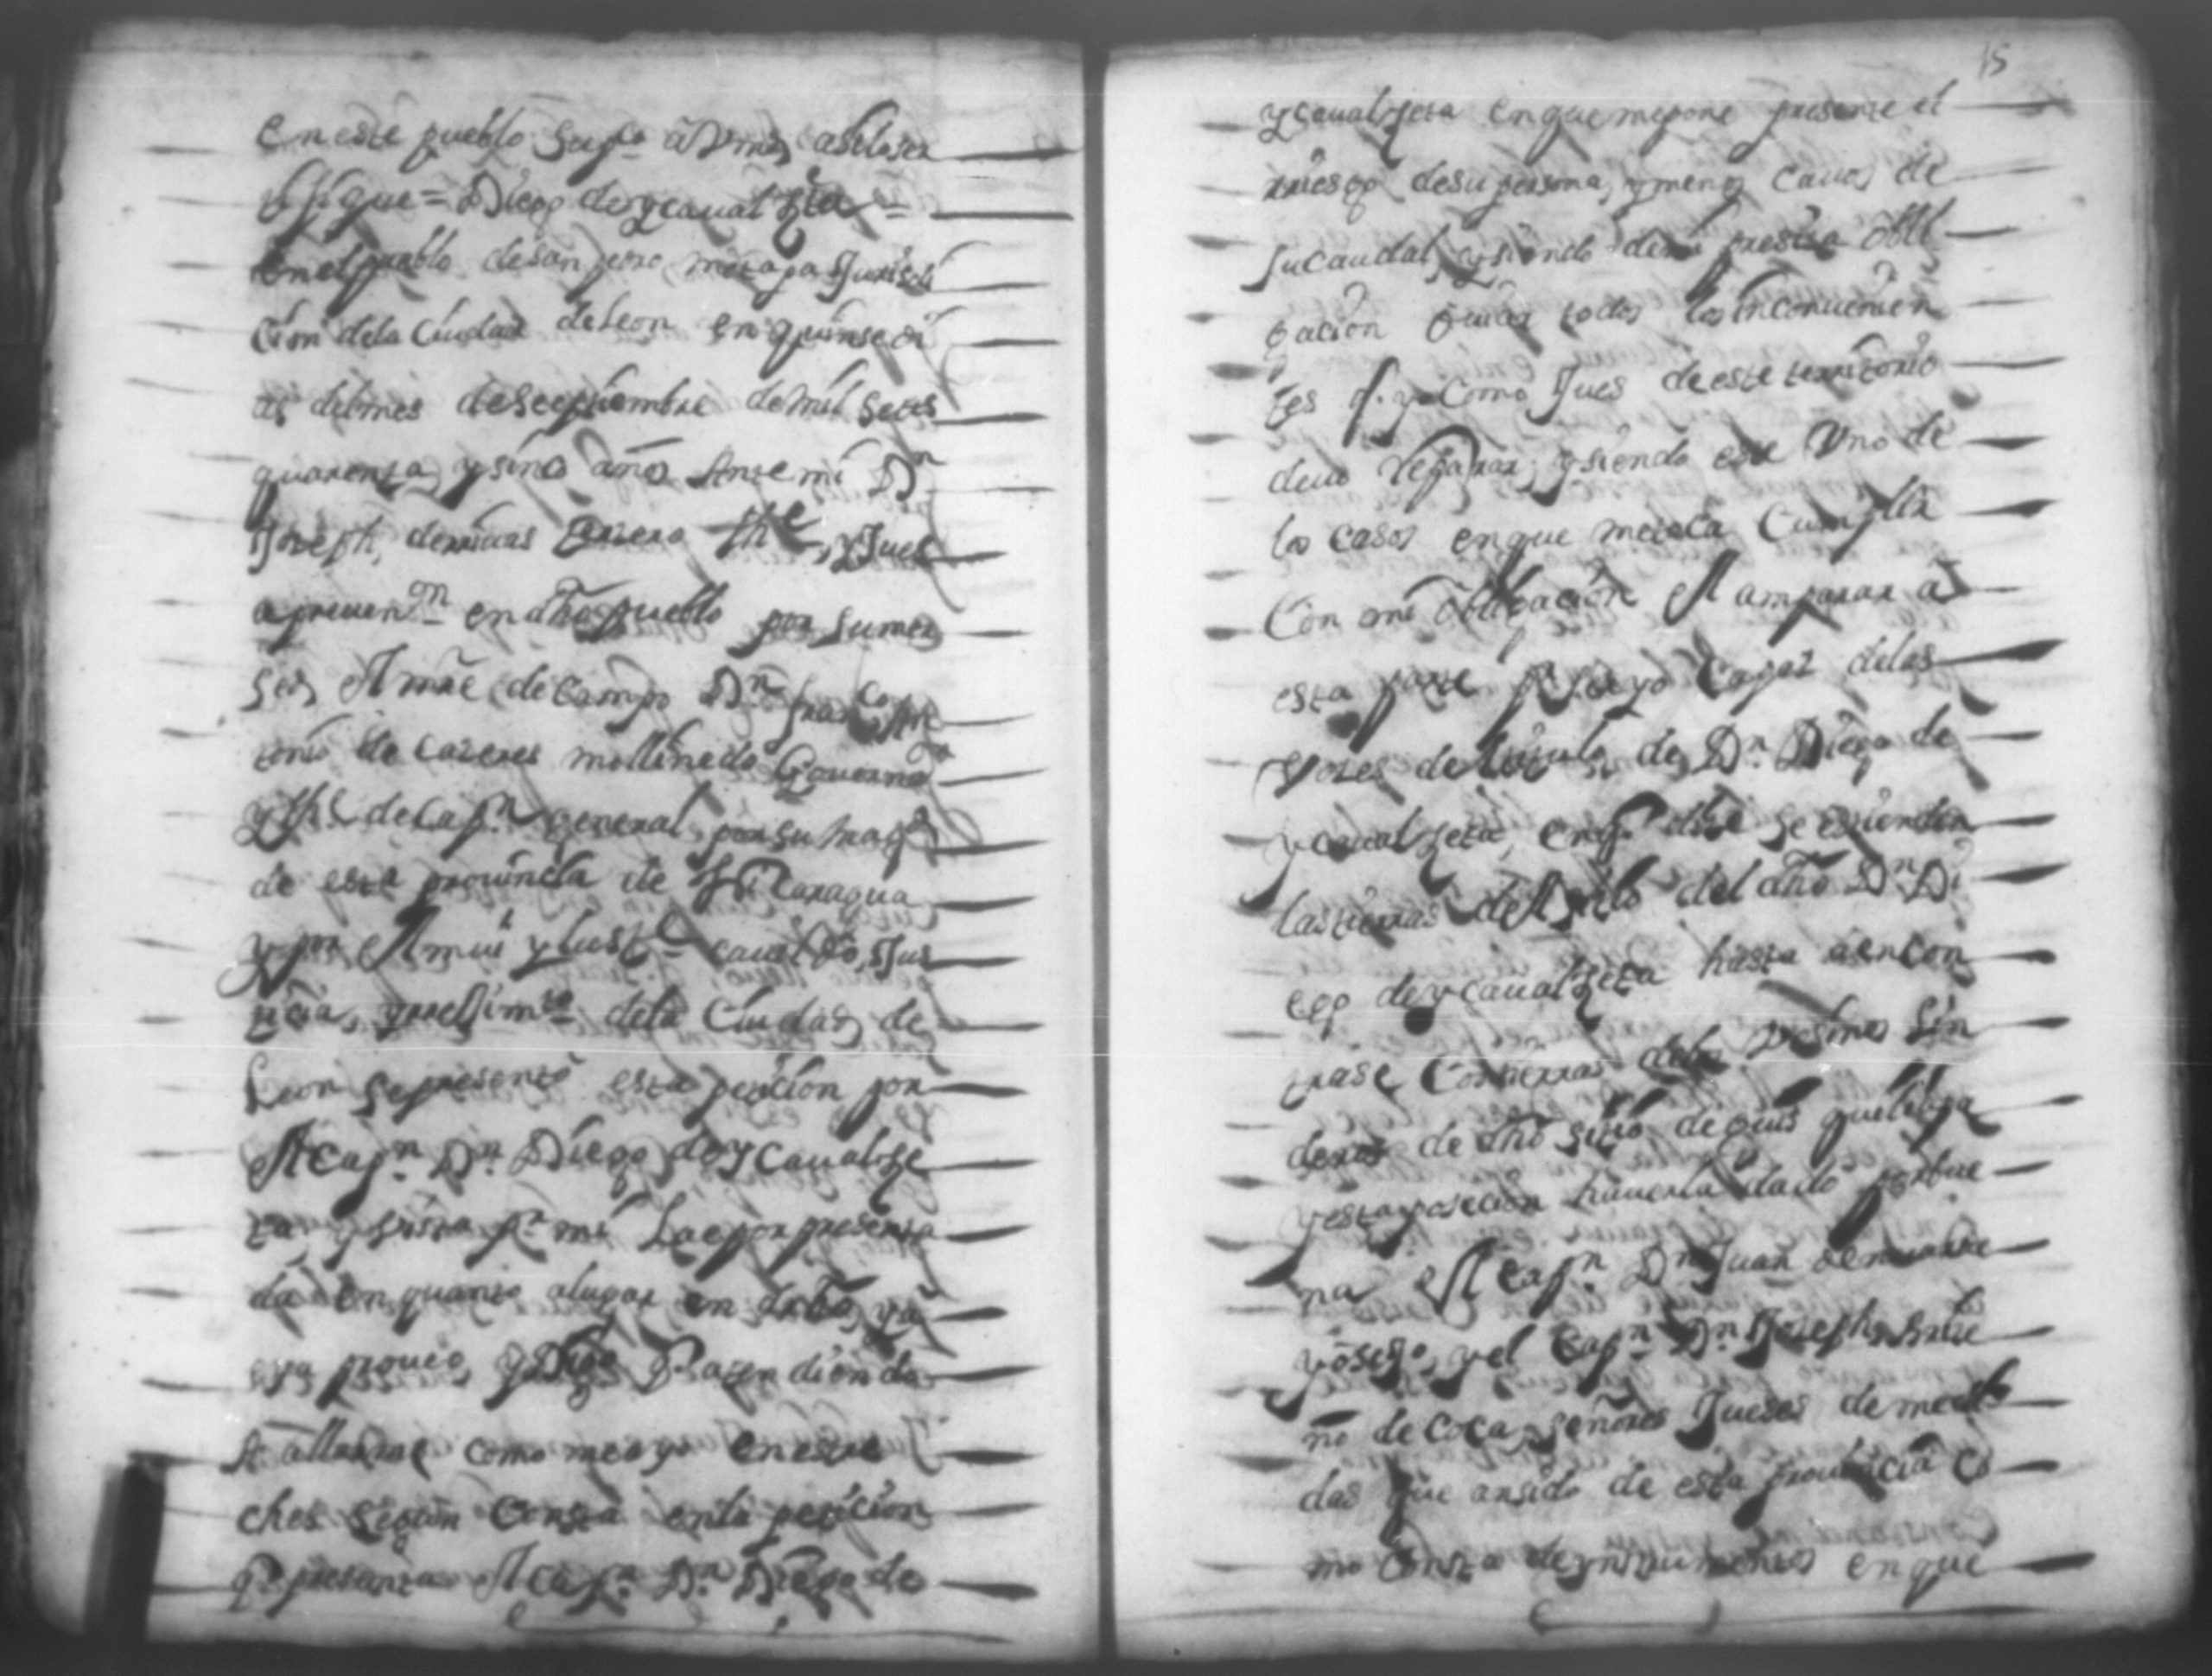 en este pueblo Supco a Vmd, asi lo ser
tifique = Diego de ycaualzeta =
En el pueblo de san pedro metapa Jurisdi
Cion dela Ciudad de Leon en quinse di
as del mes de Septiembre de mil setes
quarenta, y sinco años Ante mi Dn
Joseph, de riuas thee, y Jues
a preuenon en dho pueblo por su mer
sed, el mre de Campo Dn Franco An
tonio de Cazeres mollinedo Gouernador
y thee de Capn general, por su Magd
de esta prouincia de Nicaragua
y por el mui ylustre Cauildo, Jus
ticia, y rexsimto dela Ciudad de
Leon se presento esta petision por
el Capn Dn Diego de YCaualze
ta, y vista pr mi La e por presenta
da en quanto a lugar en drcho, y a
ella proueo, y Digo q atendiendo
a allarse como me yo en estre
ches segun Consta en la petision
q presenta el Capn Dn Diego de
15
ycaualzeta en que me pone presente el
rriesgo de su persona, y menos Cauos de
su caudal, y siendo de mi presisa obli
gasion euitar todos los inconuenien
tes q. yo Como Jues de este territorio
deuo reparar, y siendo este Vno de
los casos en que me toca Cumplir
Con mi obligacion el amparar a
esta parte pr soy yo Capaz delas
Vozes del titulo de Dn Diego de
ycaualzeta, en q dise se estienden
las tierras del sitio del dho Dn Di
ego de ycaualzeta hasta aencon
trase Con tierras delos Vesinos Lin
deros de dho sitio de
y esta posecion hauerla dado por bue
na el Capn Dn Juan de
y el Capn Dn Joseph,
no de Coca, señores Jueses de medi
das que an sido de esta prouincia Co
mo Consta de ynstrumentos en que